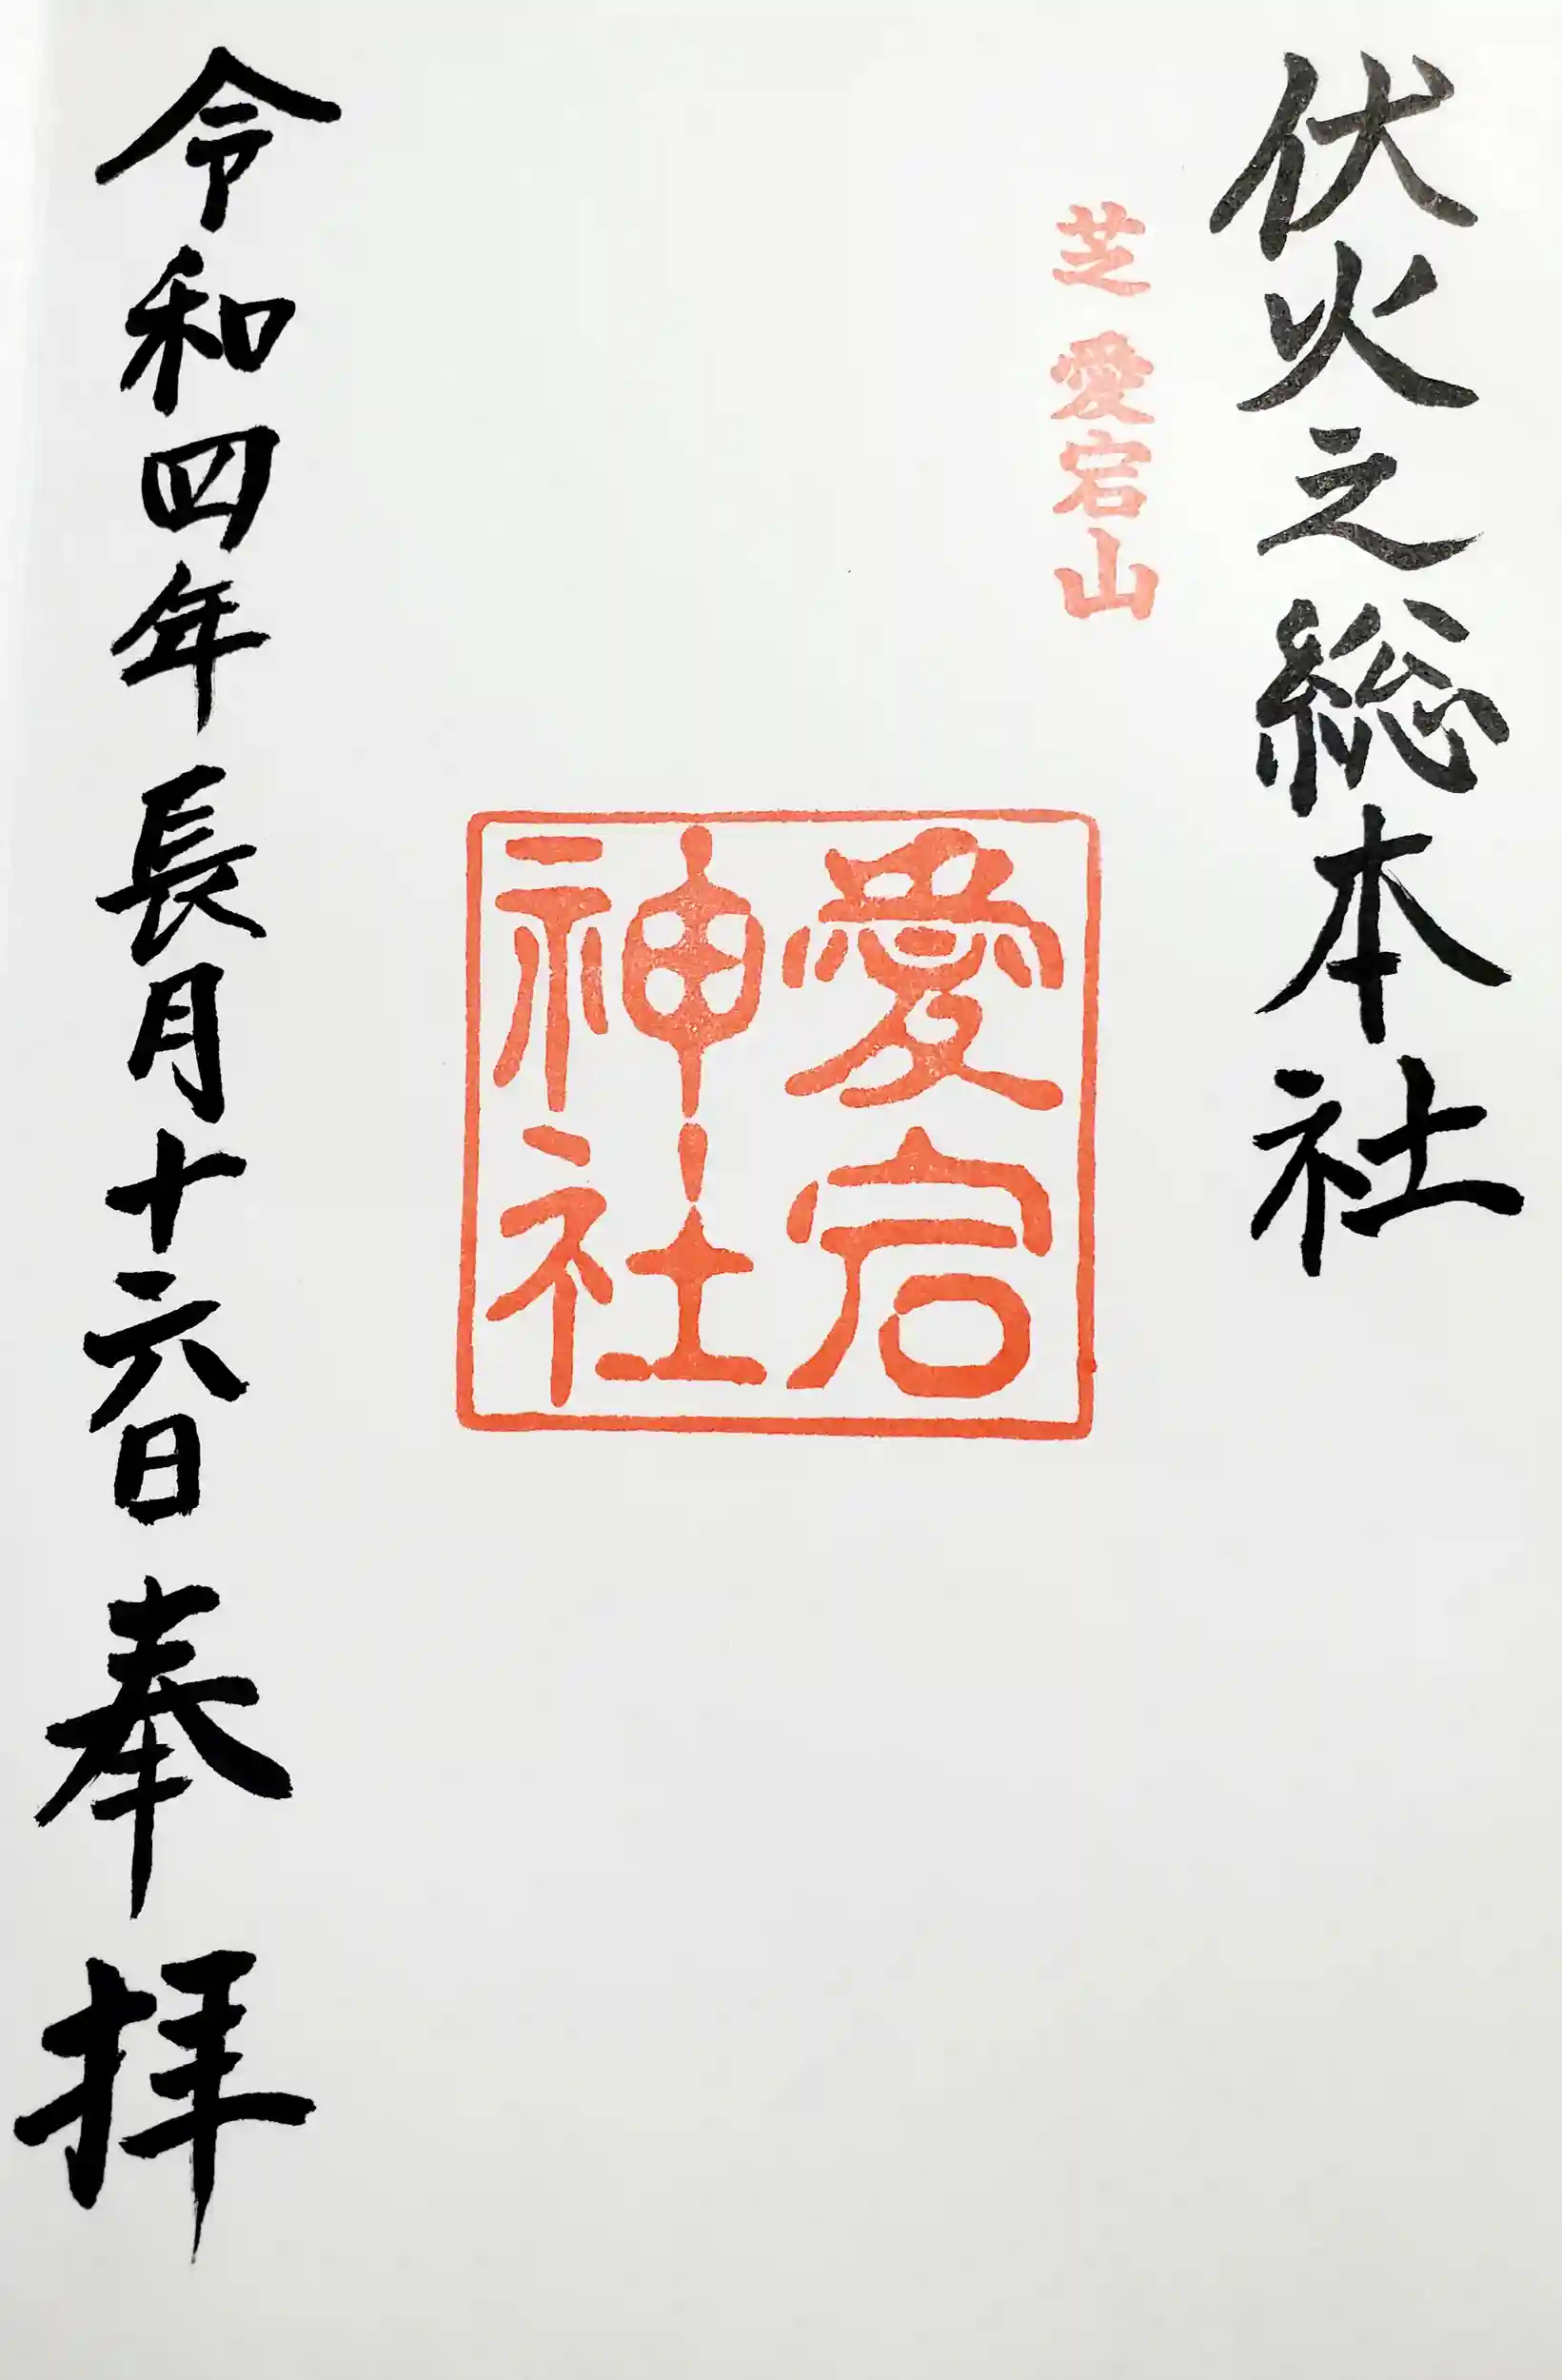 伏火之総本社
芝 愛宕山
愛宕
神社
令和四年長月十六日 奉拝